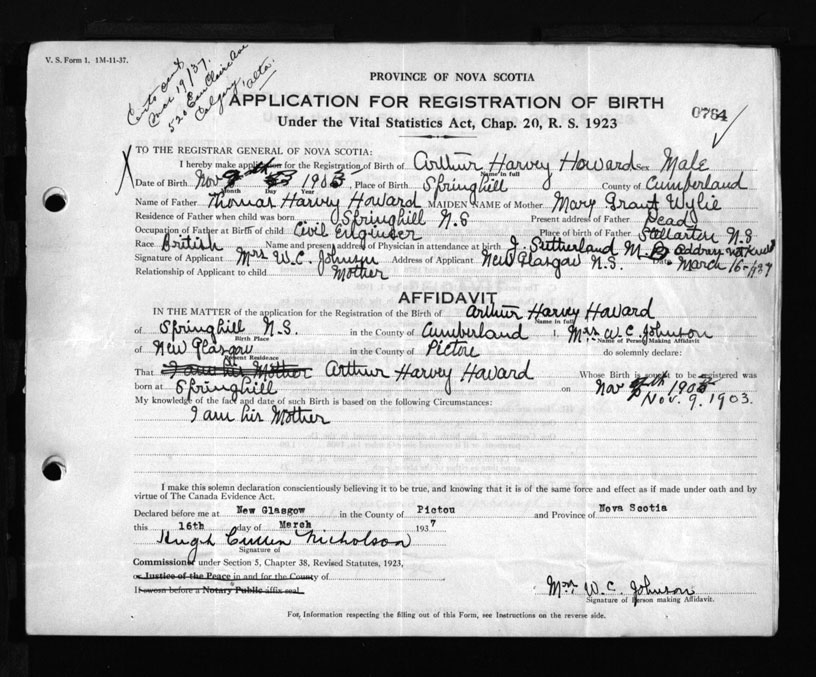 V. S. Form 1. 1M-11-37.
Mar 19/37.
Calgary, Alta.
PROVINCE OF NOVA SCOTIA
APPLICATION FOR REGISTRATION OF BIRTH
0764
Under the Vital Statistics Act, Chap. 20, R. S. 1923
TO THE REGISTRAR GENERAL OF NOVA SCOTIA:
I hereby make application for the Registration of Birth of Arthur Harvey Howard Sex Male
Name in full
Date of Birth Nov 1903, Place of Birth Springhill County of Cumberland
Month Day Year
Name of Father Thomas Harvey Howard MAIDEN NAME of Mother Mary Grant Wylie
Residence of Father when child was born Springhill N.S Present address of Father Dead
Occupation of Father at Birth of child Civil Enginer Place of birth of Father Stellarton N.S
Race British Name and present address of Physician in attendance at birth J. Sutherland M.D address not known
Signature of Applicant Mrs W.C. Johnson Address of Applicant New Glasgow N.S. Date March 16-1937
Relationship of Applicant to child Mother
AFFIDAVIT
IN THE MATTER of the application for the Registration of the Birth of Arthur Harvey Howard
Name in full
of Springhill N.S. in the County of Cumberland I, Mrs W.C. Johnson
Birth Place Name of Person Making Affidavit
of New Glasgow in the County of Pictou do solemnly declare:
Present Residence
That I am his Mother Arthur Harvey Howard Whose Birth is sought to be registered was
born at Springhill on Nov 1903
Nov. 9. 1903.
My knowledge of the fact and date of such Birth is based on the following Circumstances:
I am his Mother
I make this solemn declaration conscientiously believing it to be true, and knowing that it is of the same force and effect as if made under oath and by
virtue of The Canada Evidence Act.
Declared before me at New Glasgow in the County of Pictou and Province of Nova Scotia
this 16th day of March 1937
Hugh Cullen Nicholson
Signature of
Commissioner under Section 5, Chapter 38, Revised Statutes, 1923,
or Justice of the Peace in and for the County of
If sworn before a Notary Public affix seal
Mrs W.C. Johnson
Signature of Person making Affidavit.
For Information respecting the filling out of this Form, see Instructions on the reverse side.